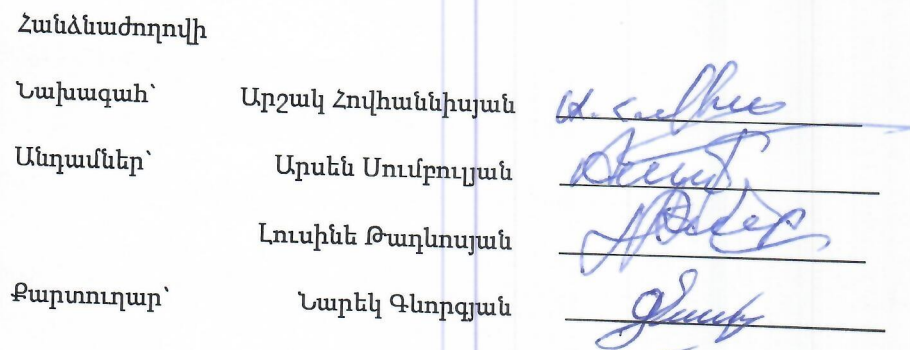 Հանձնաժողովի
Նախագահ՝ Արշակ Հովհաննիսյան
Անդամներ՝ Արսեն Սումբուլյան
Լուսինե Թադևոսյան
Քարտուղար՝ Նարեկ Գևորգյան